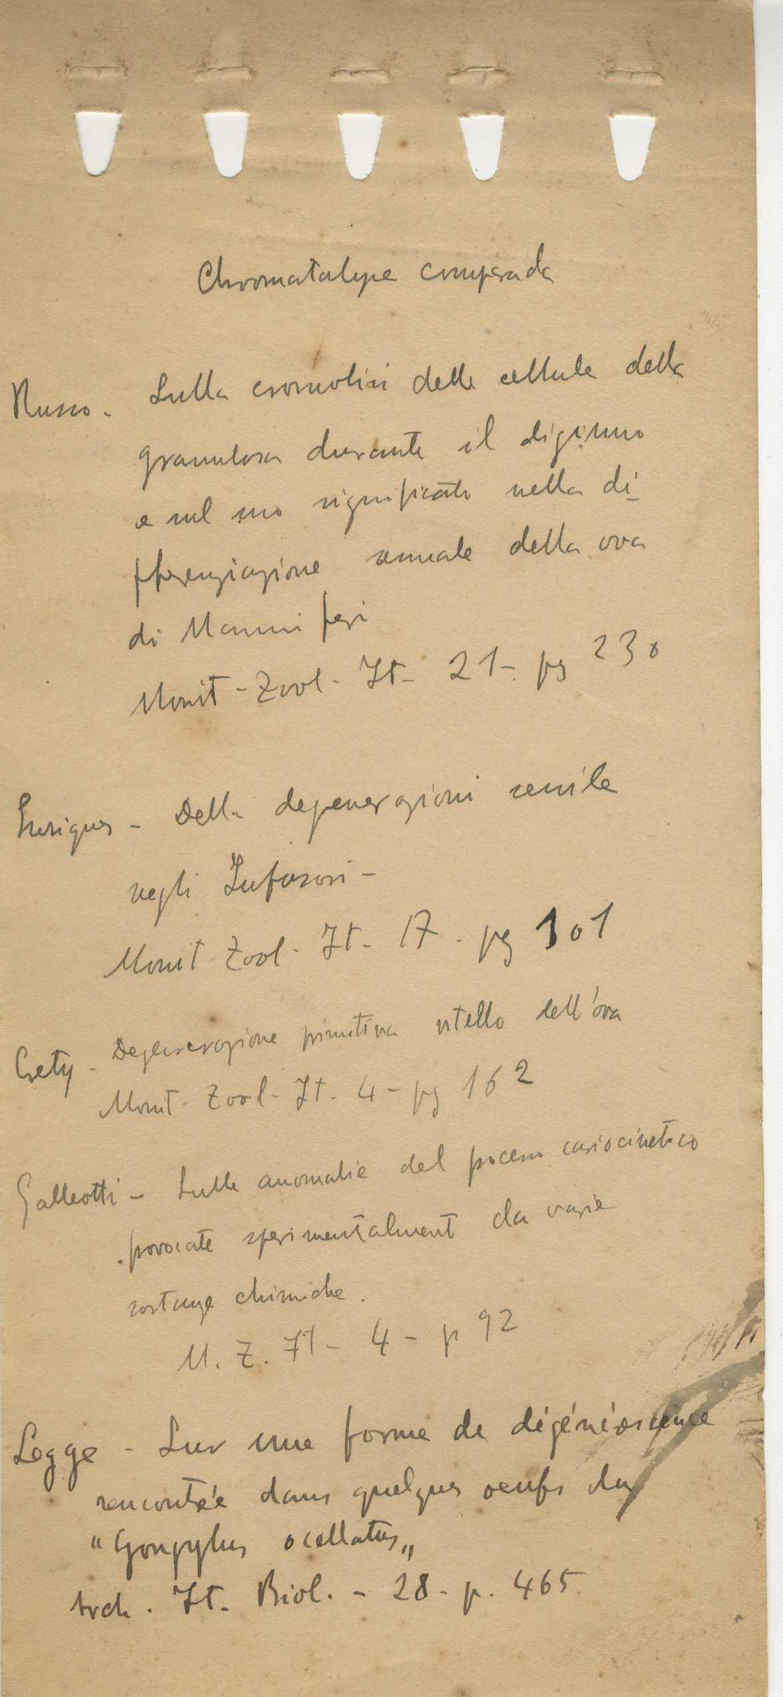 Chromatolyse comparada
Russo - Sulla cromolisi delle cellule della
granulosa durante il digiuno
e sul suo significato nella di_
fferenziazione sessuale della ova
di Mammiferi
Monit - Zool - It - 21 - pg 230
Enriques - Della degenerazioni senile
negli Infusori -
Monit Zool - It - 17 - pg 101
Crety - Degenerazione primitiva vitello dell'ova
Monit - Zool - It - 4 - pg 162
Galleotti - Sulle anomalie del processo cariocinetico
provocate sperimentalment da varie
sostanze chimiche.
M. Z. It - 4 - p 92
Legge - Sur une forme de dégénérescence
rencontrée dans quelques oeufs du
"Gongylus ocellatus„
Arch. It - Biol. - 28 - p. 465